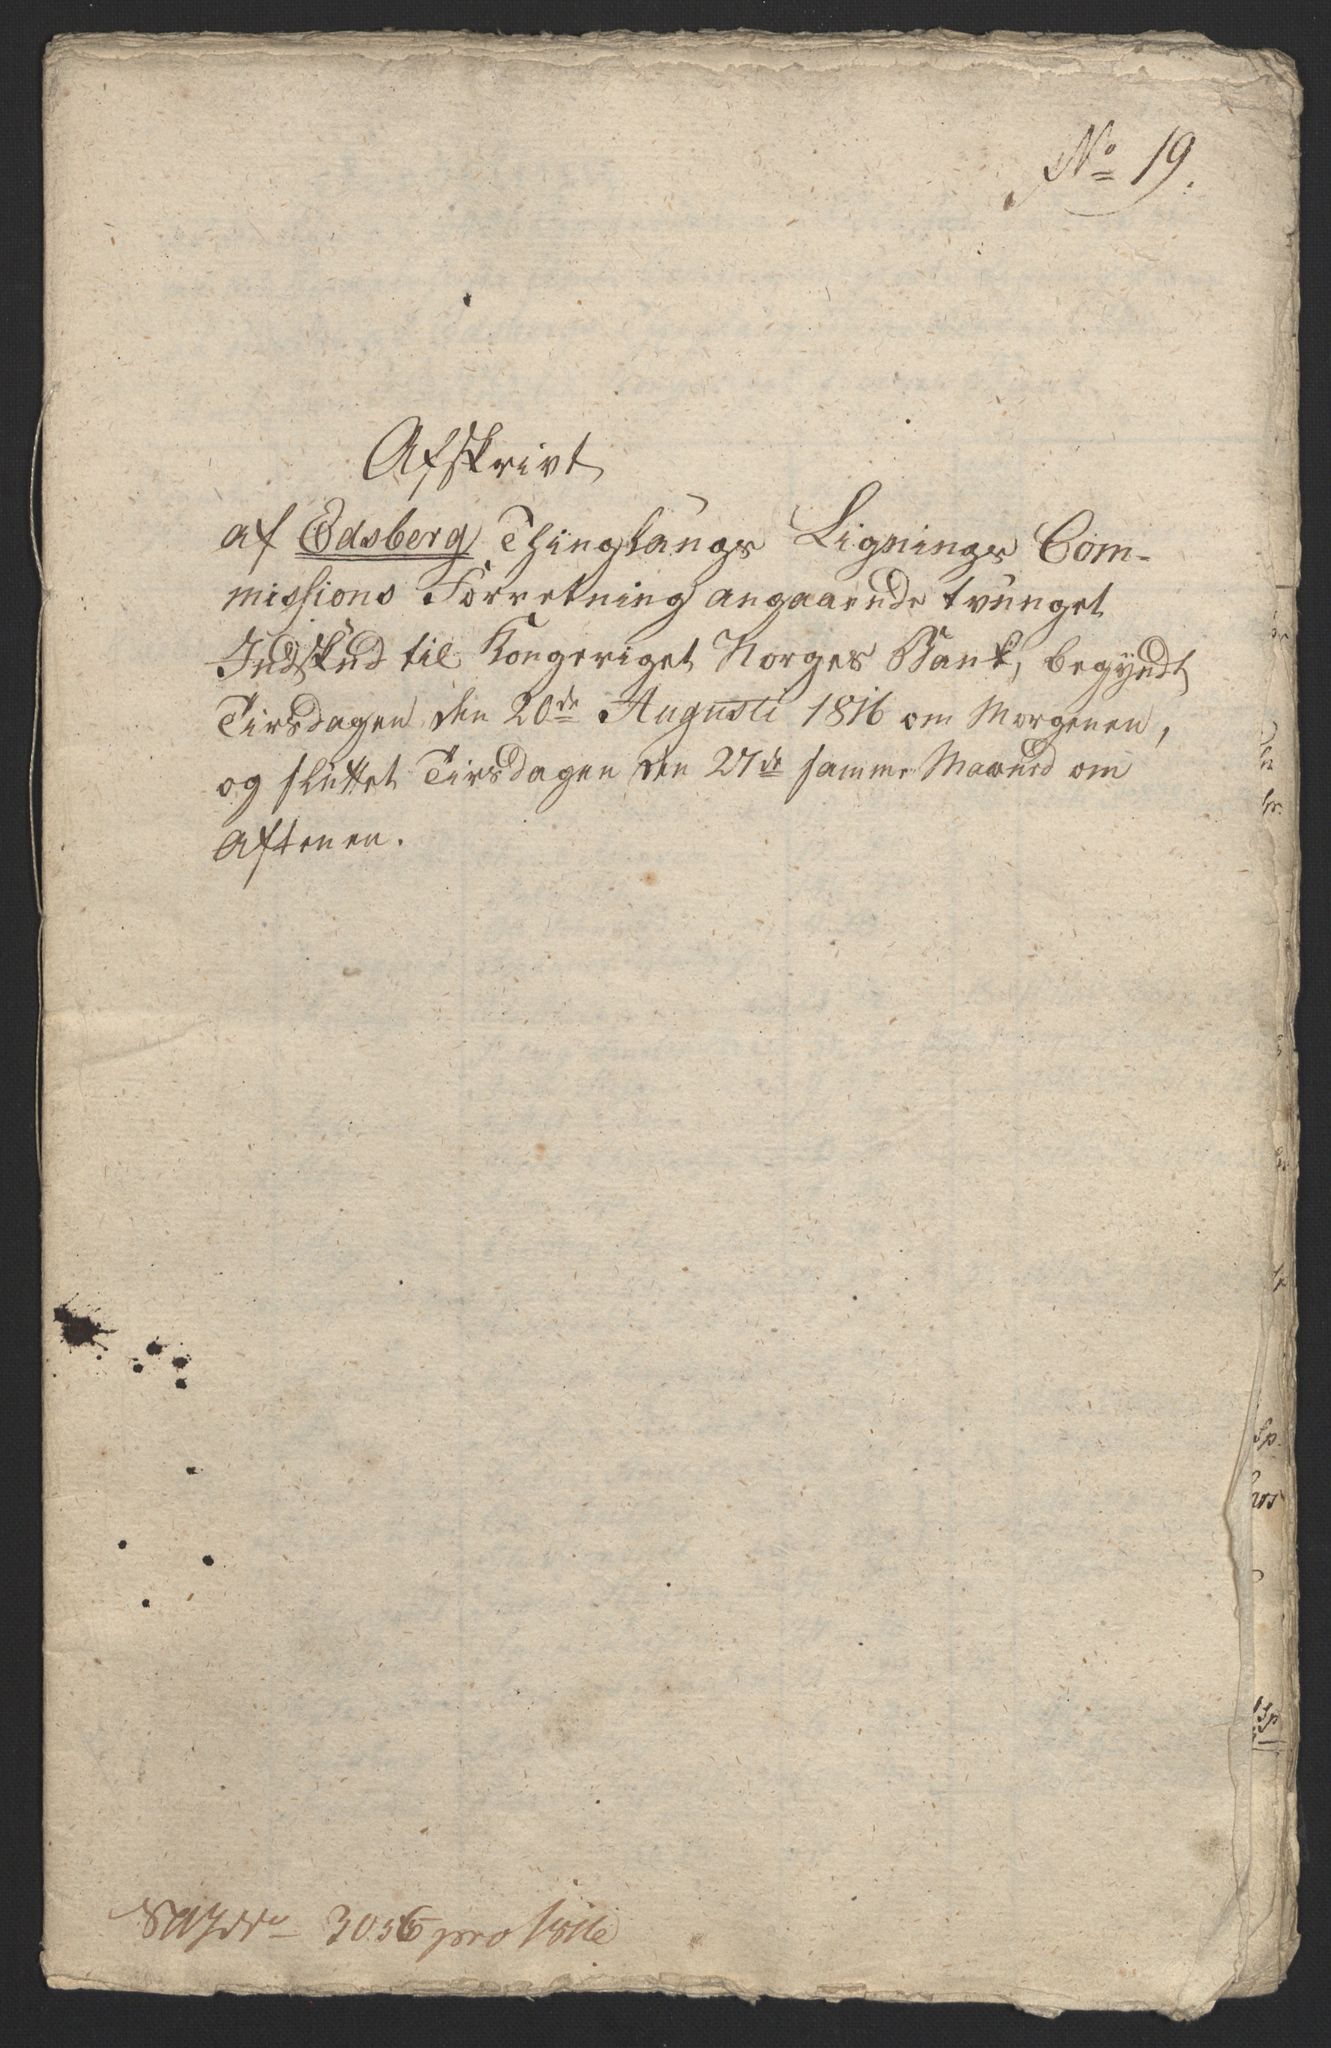 No 19.
Afskrivt
af Edsberg Thinglaugs Lignings Com-
missions Forretning angaaende tvunget
Indskud til Kongeriget Norges Bank, begyndt
Tirsdagen den 20de Augusti 1816 om Morgenen,
og sluttet Tirsdagen den 27de samme Maaned om
Aftenen.
3056 pro 1816